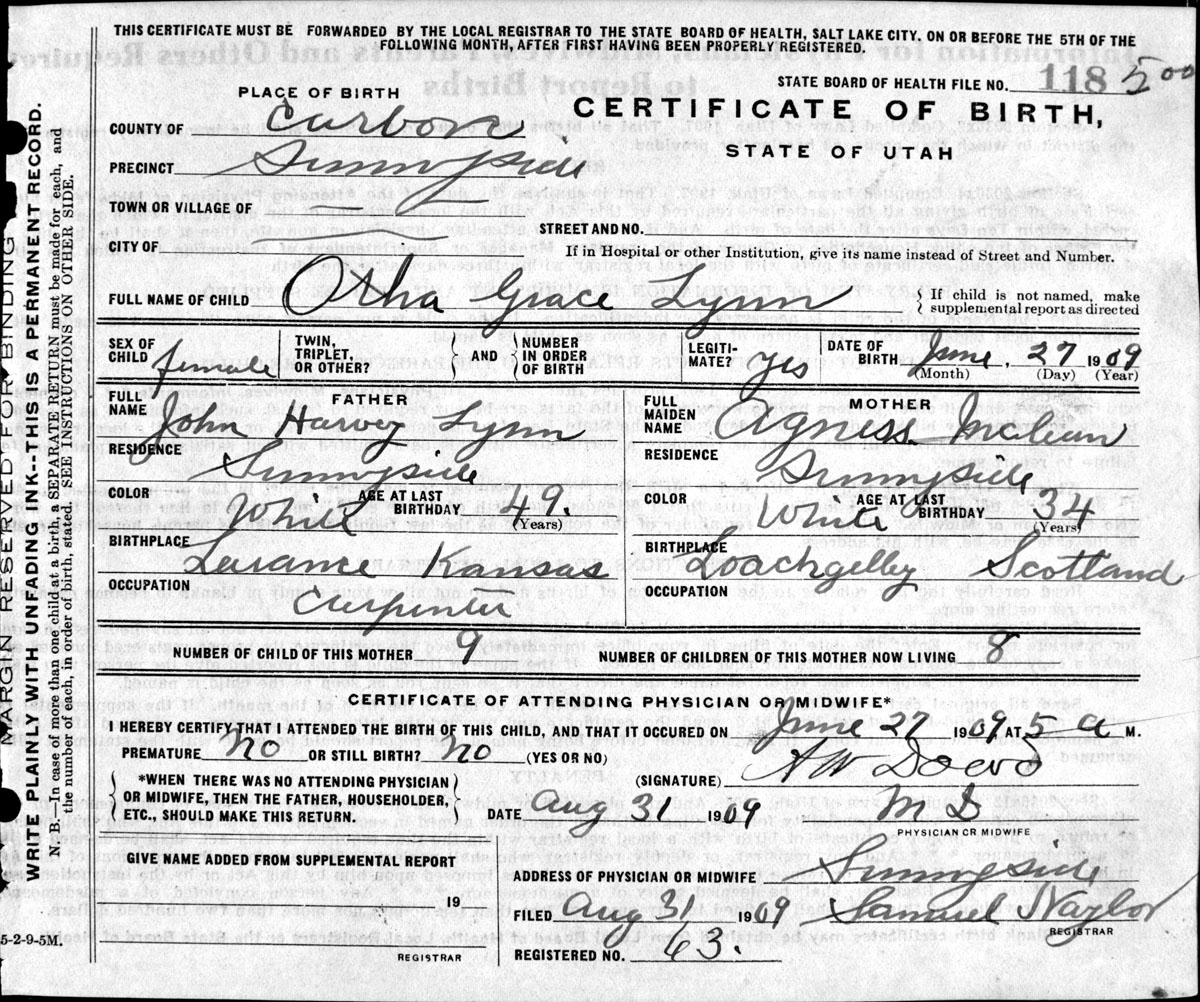 THIS CERTIFICATE MUST BE FORWARDED BY THE LOCAL REGISTRAR TO THE STATE BOARD OF HEALTH, SALT LAKE CITY, ON OR BEFORE THE 5TH OF THE
FOLLOWING MONTH, AFTER FIRST HAVING BEEN PROPERLY REGISTERED.
STATE BOARD OF HEALTH FILE NO. 118 5 00
PLACE OF BIRTH
CERTIFICATE OF BIRTH,
STATE OF UTAH
COUNTY OF Carbon
PRECINCT Sunnyside
TOWN OR VILLAGE OF
STREET AND NO.
CITY OF
If in Hospital or other Institution, give its name instead of Street and Number.
FULL NAME OF CHILD Otha Grace Lynn
If child is not named, make
supplemental report as directed
SEX OF CHILD female
TWIN, TRIPLET, OR OTHER?
AND
NUMBER IN ORDER OF BIRTH
LEGITIMATE? yes
DATE OF BIRTH June, 27 1909
(Month) (Day) (Year)
FATHER
FULL NAME John Harvey Lynn
RESIDENCE Sunnyside
COLOR White AGE AT LAST BIRTHDAY 49. (Years)
BIRTHPLACE Larance Kansas
OCCUPATION Carpenter
MOTHER
FULL MAIDEN NAME Agness Mclean
RESIDENCE Sunnyside
COLOR White AGE AT LAST BIRTHDAY 34 (Years)
BIRTHPLACE Loachgelby Scotland
OCCUPATION
NUMBER OF CHILD OF THIS MOTHER 9 NUMBER OF CHILDREN OF THIS MOTHER NOW LIVING 8
CERTIFICATE OF ATTENDING PHYSICIAN OR MIDWIFE*
I HEREBY CERTIFY THAT I ATTENDED THE BIRTH OF THIS CHILD, AND THAT IT OCCURED ON June 27 1909 AT 5 a M.
PREMATURE? No OR STILL BIRTH? No (YES OR NO)
*WHEN THERE WAS NO ATTENDING PHYSICIAN
OR MIDWIFE, THEN THE FATHER, HOUSEHOLDER,
ETC., SHOULD MAKE THIS RETURN.
(SIGNATURE) A W Dowd
DATE Aug 31 1909 M D
PHYSICIAN OR MIDWIFE
GIVE NAME ADDED FROM SUPPLEMENTAL REPORT
19
REGISTRAR
ADDRESS OF PHYSICIAN OR MIDWIFE Sunnyside
FILED Aug 31 1909 Samuel Naylor
REGISTRAR
REGISTERED NO. 63.
5-2-9-5M.
MARGIN RESERVED FOR BINDING
WRITE PLAINLY WITH UNFADING INK--THIS IS A PERMANENT RECORD.
N. B.--In case of more than one child at a birth, a SEPARATE RETURN must be made for each, and
the number of each, in order of birth, stated. SEE INSTRUCTIONS ON OTHER SIDE.